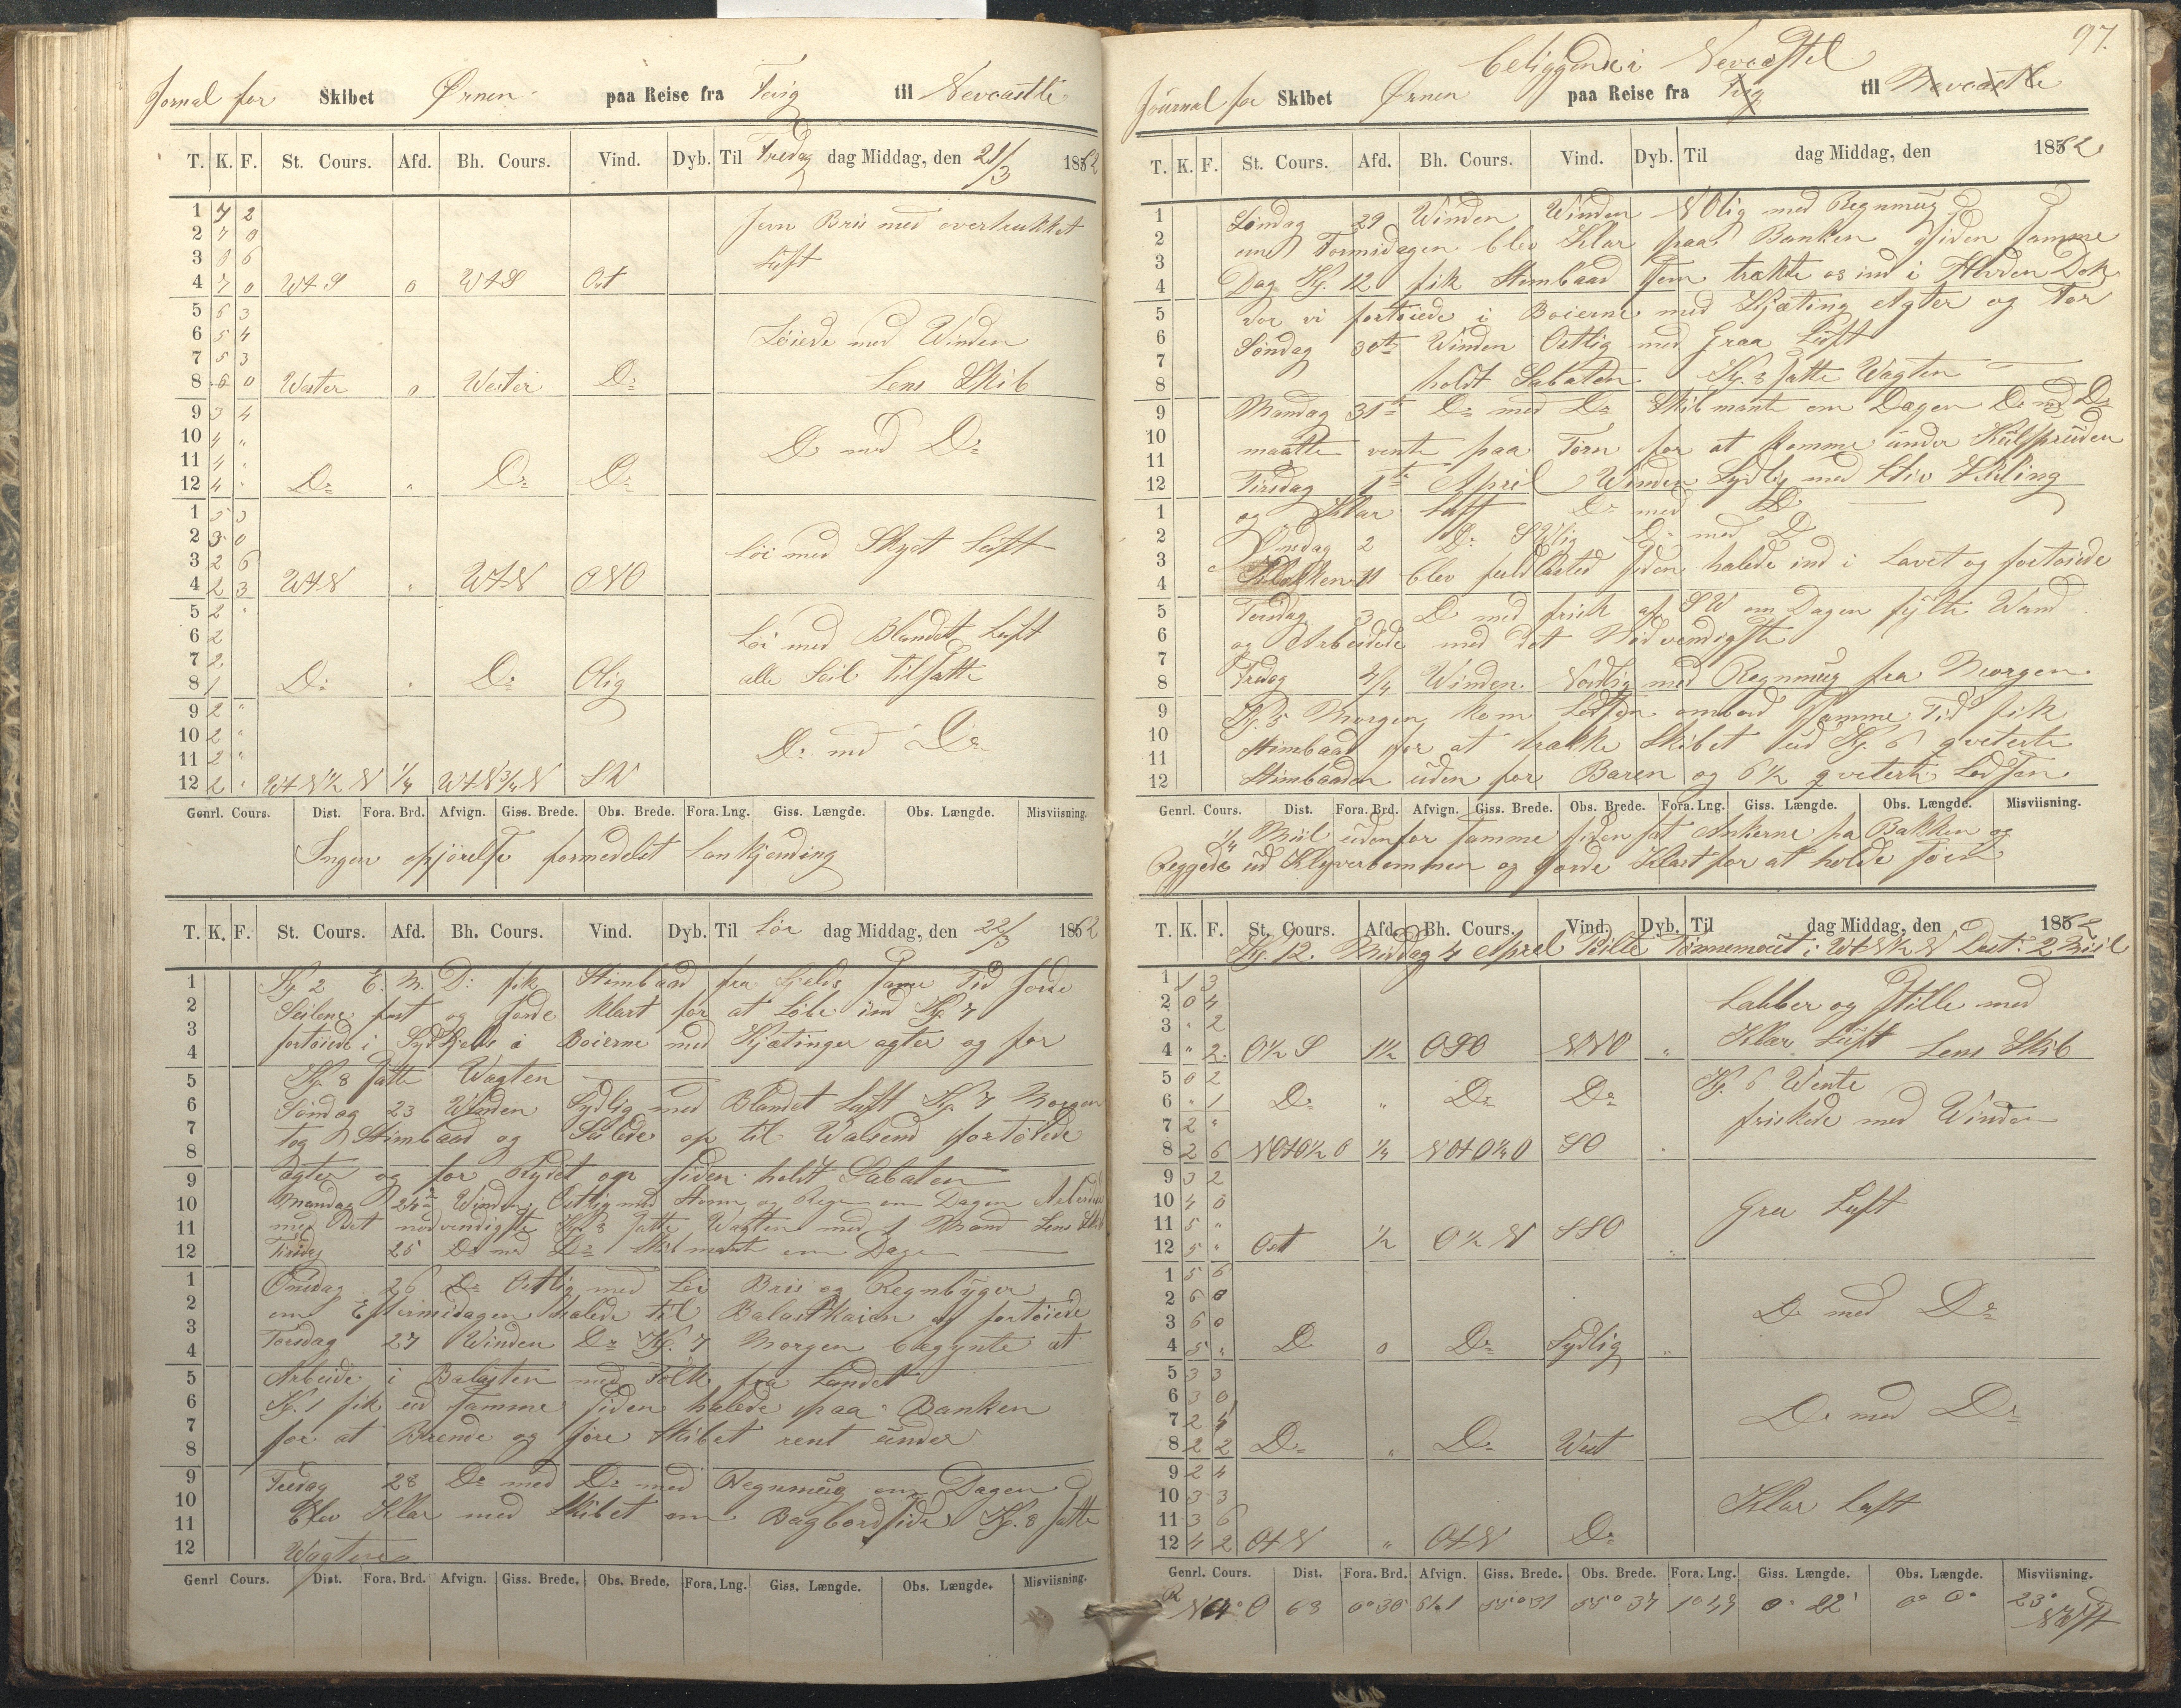 Jornal for Skibet Ørnen paa Reise fra Fevig til Nevcastle
T. K. F. St. Cours. Afd. Bh. Cours. Vind. Dyb. Til Fredag dag Middag, den 21/3 1862
1 7 2 Jevn Bris med overtrukket
2 7 0 Luft
3 8 6
4 7 0 WtS 0 WtS Ost
5 5 3
6 5 4 Løiede med Winden
7 5 3
8 6 0 Wester 0 Wester Do Lens Skib
9 3 4
10 4 " Do med Do
11 4 "
12 4 " Do " Do Do
1 5 3
2 3 0 Løi med Skyet Luft
3 2 6
4 2 3 WtN " WtN ONO
5 2 "
6 2 Løi med Blandet Luft
7 2 alle Seil Tilsatte
8 1 Do " Do Olig
9 2 "
10 2 " Do med Do
11 2 "
12 2 " WtN½N ¼ WtN¾N SW
Genrl. Cours. Dist. Fora. Brd. Afvign. Giss. Brede. Obs. Brede. Fora. Lng. Giss. Længde. Obs. Længde. Misviisning.
Ingen opjørelse formedelst Lankjending
T. K. F. St. Cours. Afd. Bh. Cours. Vind. Dyb. Til Lør dag Middag, den 22/3 1862
1 Kp 2 E. M. D: fik Stimbaad fra Sjelds samme Tid gorde
2 Seilene fast og gorde klart for at Løbe ind Kp 7
3 fortøiede i Syd Sjelds i Boierne med Kjætinger agter og for
4
5 Kp. 8 satte Wagten
6 Søndag 23 Winden Sydlig med Blandet Luft Kp 7 Morgen
7 tog Stimbaad og Seilede op til Walsend fortøiede
8
9 agter og for Rydet op siden holdt Sabaten
10 Mandag 24de Winden Ostlig med Storm og Regn om Dagen Arbeidet
11 med Det nødvendigste Kp 8 satte Wagten med 1 Mand Lens Skib
12 Tirsdag 25 Do med Do Skibmante om Dagen
1 Onsdag 26 Do Ostlig med Løi Bris og Regnbyger
2 om Eftermidagen halede til Balastkaien og fortøiede
3 Torsdag 27 Winden Do Kp. 7 Morgen begynte at
4
5 Arbeide i Balasten med Folk fra Landet
6 Kp. 1 fik ud samme siden halede paa Banken
7 for at Brende og jøre Skibet rent under
8
9 Fredag 28 Do med Do med Regnmug om Dagen
10 blev Klar med Skibet om Bagbordside Kp. 8 satte
11
12 Wagten
Genrl Cours. Dist. Fora. Brd. Afvign. Giss. Brede. Obs. Brede. Fora. Lng. Giss. Længde. Obs. Længde. Misviisning.
97.
beliggende i Nevcastel
Journal for Skibet Ørnen paa Reise fra Fevig til Nevcastle
T. K. F. St. Cours. Afd. Bh. Cours. Vind. Dyb. Til dag Middag, den 1862
1 Løndag 29 Winden Winden NOlig med Regnmug
2 om Formidagen blev Klar paa Banken siden samme
3
4 Dag Kp. 12 fik Stimbaad som trækte os ind i Dok
5 vor vi fortøiede i Boierne med Kjæting Agter og For
6 Søndag 30te Winden Ostlig med Graa Luft
7
8 holdt Sabaten Kp. 8 satte Wagten
9 Mandag 31te Do med Do Skibmante om Dagen Do med Do
10 maatte vente paa Tørn for at komme under Kulspruden
11
12 Tirsdag 1te April Winden Sydlig med Stiv Kuling
1 og Klar Luft Do med Do
2 Onsdag 2 Do SWlig Do med Do
3 Klokken 11 blev fuldlasted siden halede ind i Lavet og fortøiede
4
5 Torsdag 3 Do med frisk af SW om Dagen fylte Wand
6 og Arbeidede med det Nødvendigste
7
8 Fredag 4/4 Winden Nordlig med Regnmug fra Morgen
9 Kp. 5 Morgen kom Lodsen ombord samme Tid fik
10 Stimbaad for at trække Skibet ud Kp. 6 qveterte
11
12 Stimbaaden uden for Baren og 6½ qveterte Lodsen
Genrl. Cours. Dist. Fora. Brd. Afvign. Giss. Brede. Obs. Brede. Fora. Lng. Giss. Længde. Obs. Længde. Misviisning.
¼ Miil udenfor samme siden sat Ankerne paa Bakken og
leggede ud Klyverbommen og gorde Klart for at holde søen
T. K. F. St. Cours. Afd. Bh. Cours. Vind. Dyb. Til dag Middag, den 1862
Kp. 12. Middag 4 Aprel Peilte Tinnemouet i WtN½N Dist: 2 Miil
1 1 3
2 0 4 Labber og Stille med
3 " 2 Klar Luft
4 " 2 O½S 1½ OSO NNO " Lens Skib
5 0 2 Kp. 6 Wente
6 " 1 Do " Do Do
7 2 " friskede med Winden
8 2 6 NOtO½O ¼ NOtO¼O SO "
9 3 2
10 4 0 Graa Luft
11 5 "
12 5 " Ost ½ O½N SSO "
1 5 6
2 6 0 Do med Do
3 6 0
4 5 " Do 0 Do Sydlig "
5 3 3
6 3 0
7 2 4 Do med Do
8 2 2 Do " Do West
9 2 4
10 3 3 Klar Luft
11 3 6
12 4 2 OtN " OtN Do
Genrl. Cours. Dist. Fora. Brd. Afvign. Giss. Brede. Obs. Brede. Fora. Lng. Giss. Længde. Obs. Længde. Misviisning.
68 0°36 61.1 55°31 55°37 1°49 0° 22' 0° 0° 23° Wst